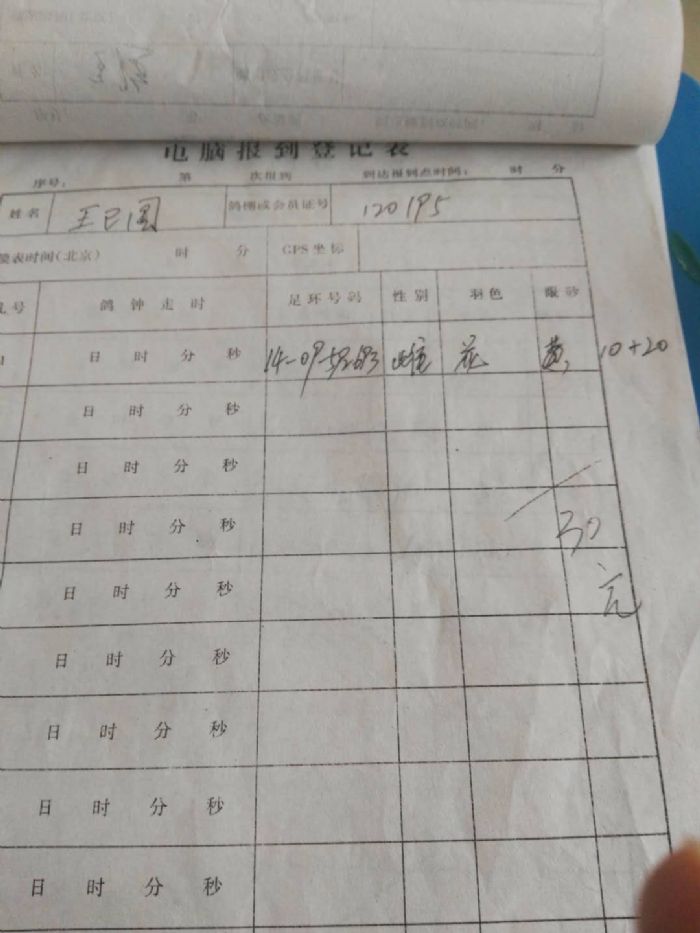 电脑报到登记表
序号： 第 次报到 到达报到点时间： 时 分
姓名 王已国 鸽棚或会员证号 120195
表时间(北京) 时 分 GPS坐标
号 鸽钟走时 足环号码 性别 羽色 眼砂
日 时 分 秒 雄 花 黄 10+20
日 时 分 秒
日 时 分 秒
日 时 分 秒 30
日 时 分 秒 元
日 时 分 秒
日 时 分 秒
日 时 分 秒
日 时 分 秒